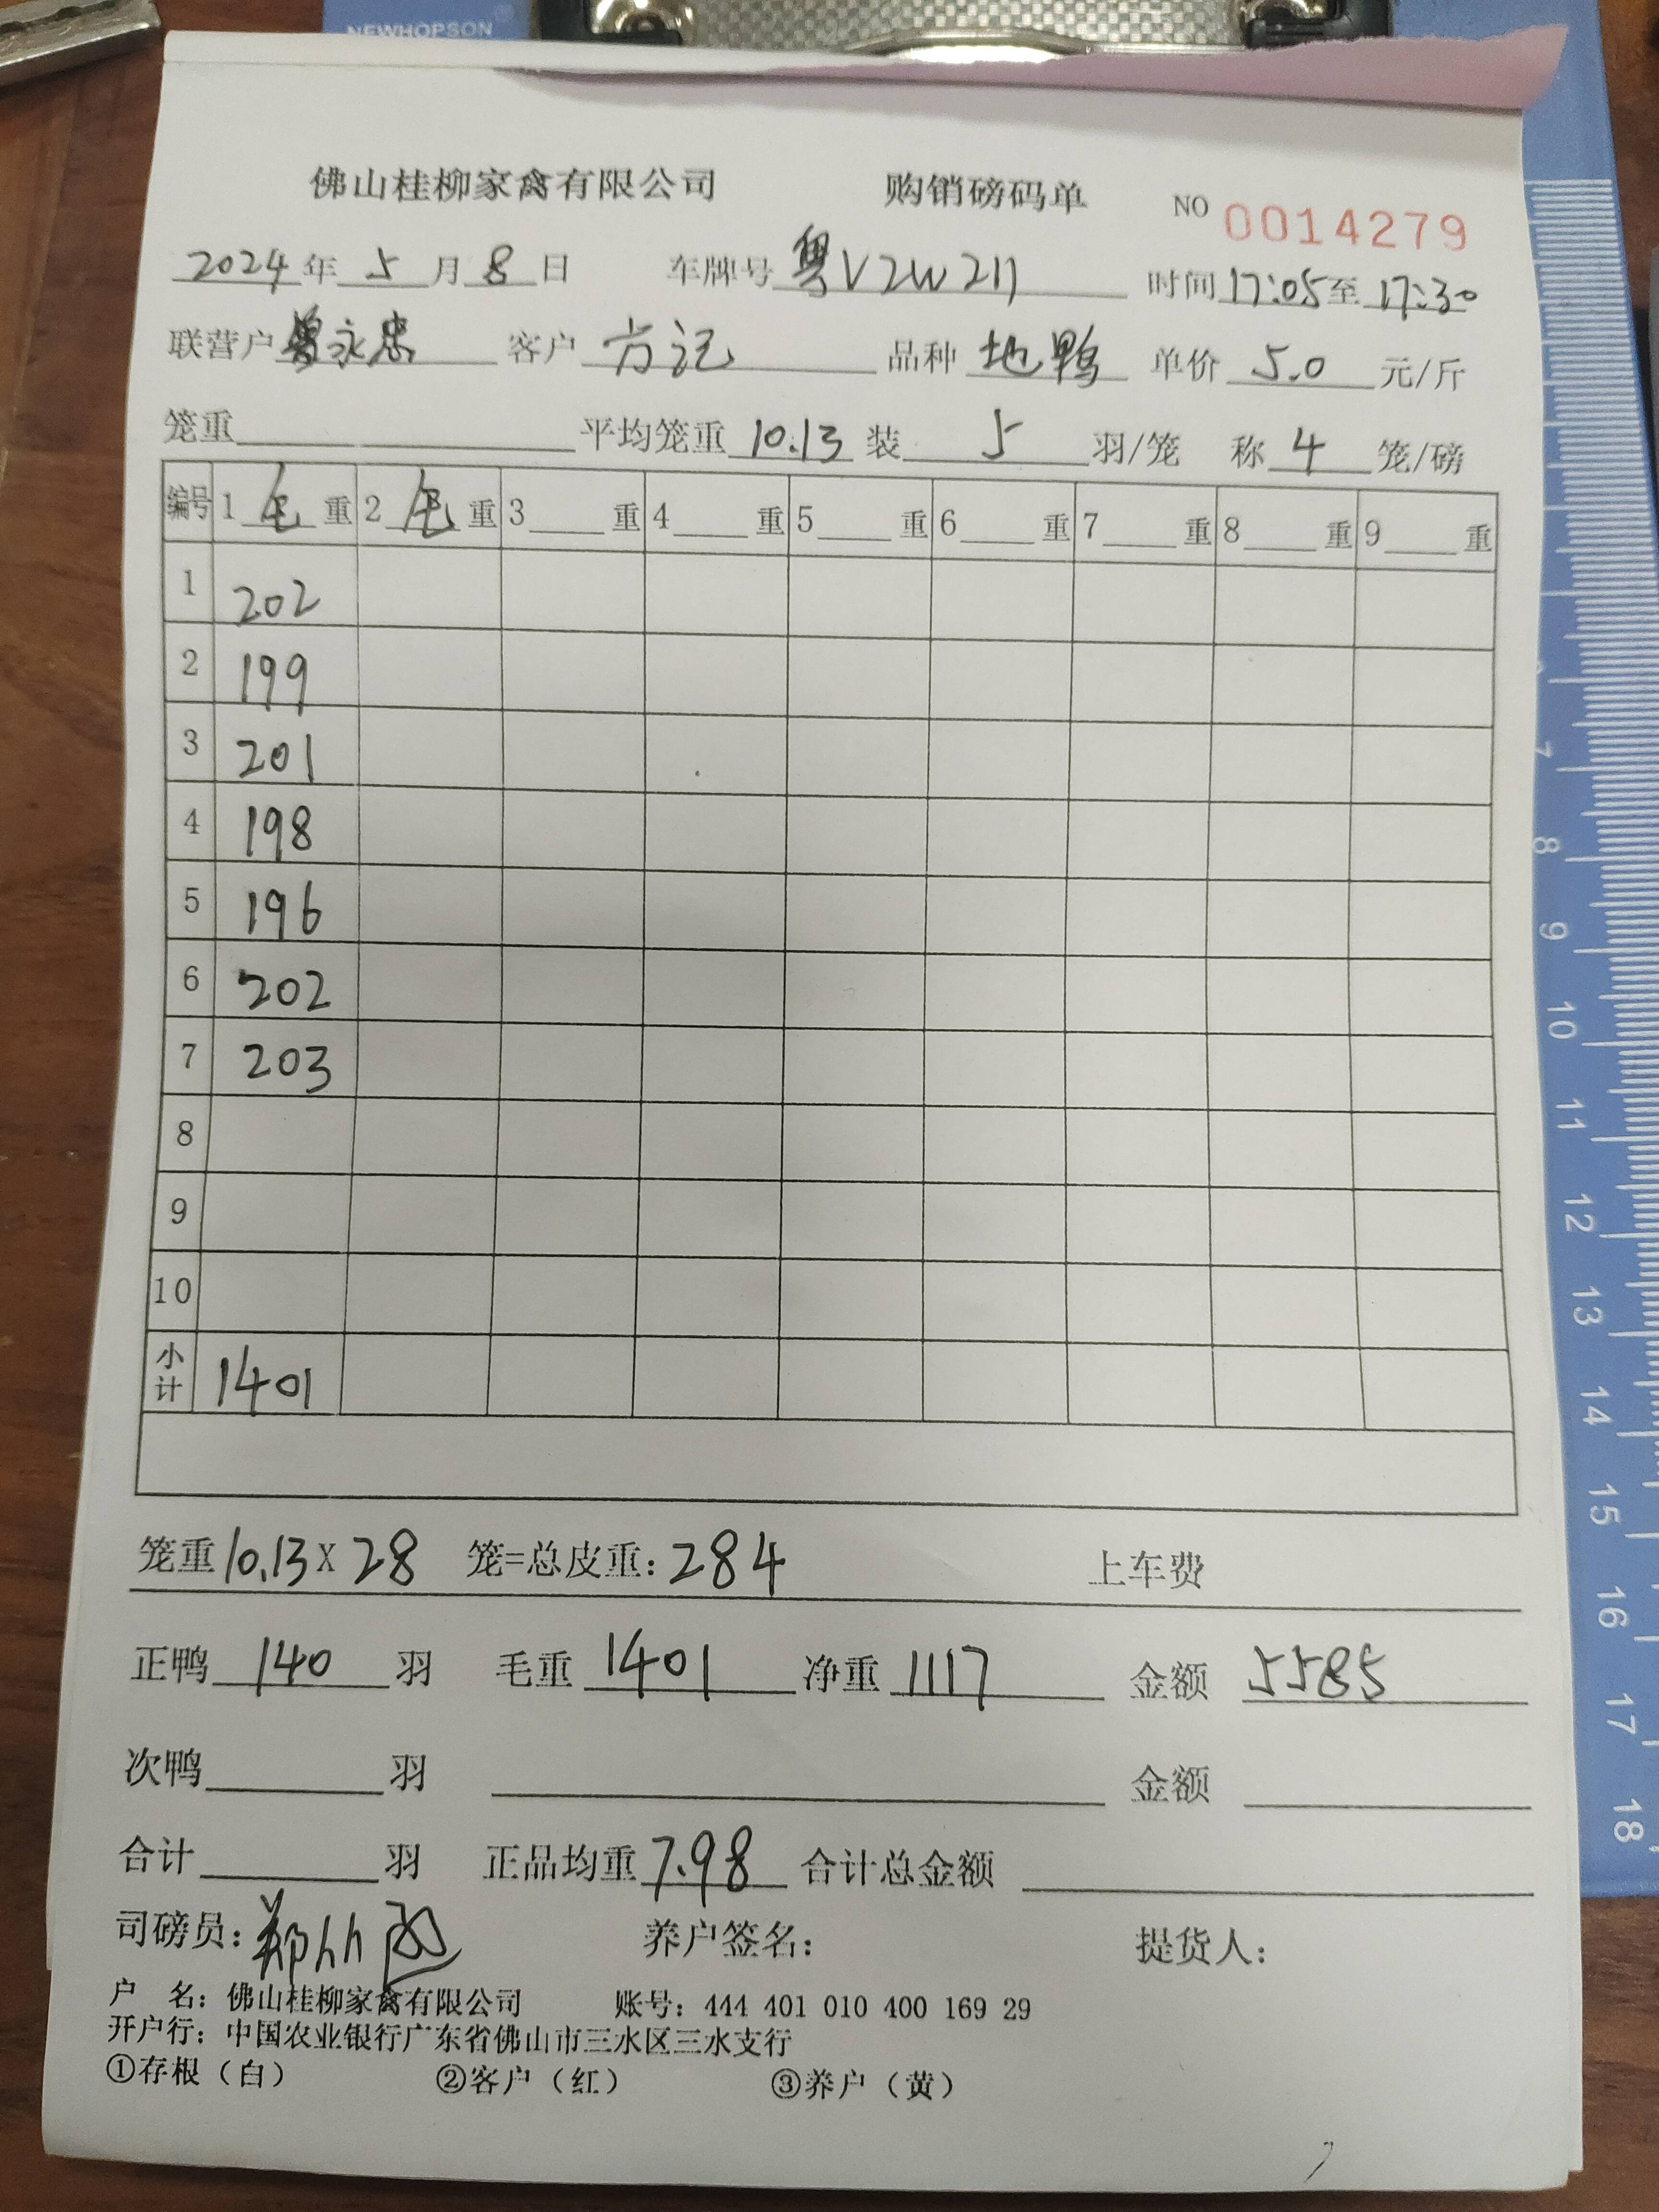 NEWHOPSON
佛山桂柳家禽有限公司 购销磅码单 NO 0014279
2024年5月8日 车牌号 粤V2W211 时间17:05至17:30
联营户曾永忠 客户 方记 品种 地鸭 单价 5.0 元/斤
笼重 平均笼重 10.13 装 5 羽/笼 称 4 笼/磅
编号 1 毛 重 2 毛 重 3 重 4 重 5 重 6 重 7 重 8 重 9 重
1 202
2 199
3 201
4 198
5 196
6 202
7 203
8
9
10
小计 1401
笼重10.13X28 笼=总皮重:284 上车费
正鸭 140 羽 毛重 1401 净重 1117 金额 5585
次鸭 羽 金额
合计 羽 正品均重7.98 合计总金额
司磅员: 养户签名: 提货人:
户 名: 佛山桂柳家禽有限公司 账号: 444 401 010 400 169 29
开户行: 中国农业银行广东省佛山市三水区三水支行
①存根（白） ②客户（红） ③养户（黄）
7
8
9
10
11
12
13
14
15
16
17
18